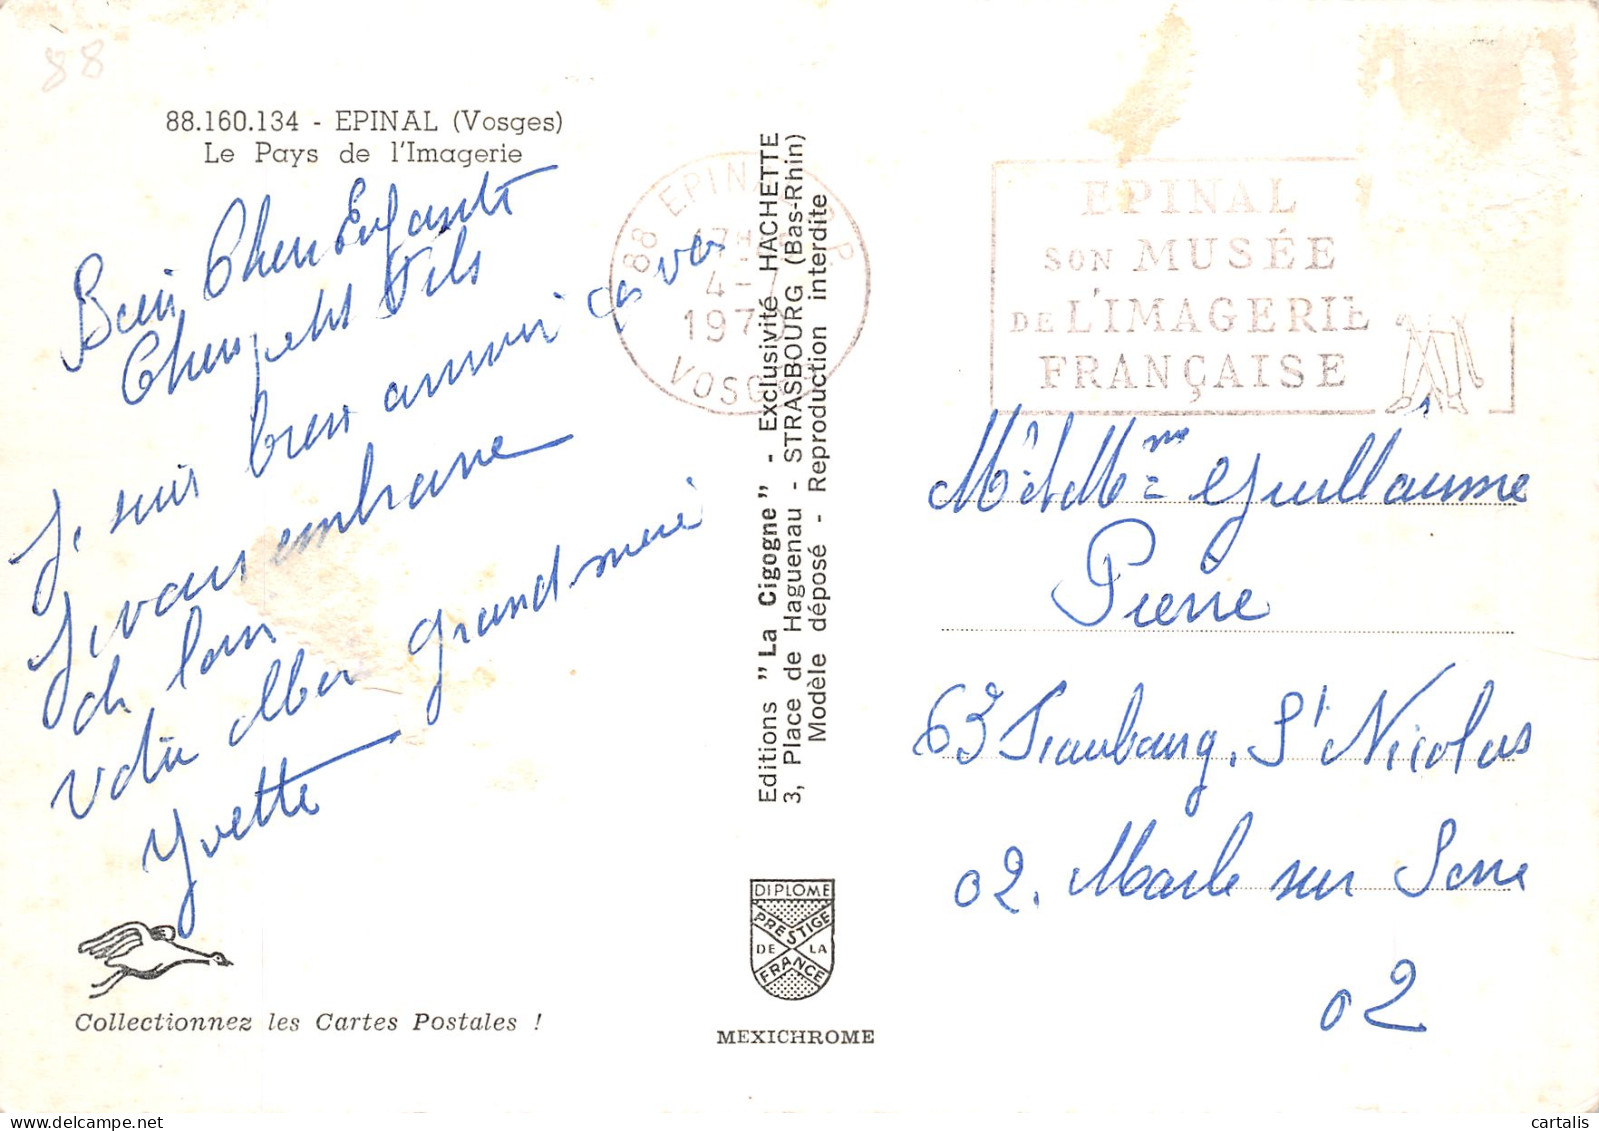 88
88.160.134 - EPINAL (Vosges)
Le Pays de l'Imagerie
Bien Chers Enfants
Cher petit Fils
Je suis bien arrivé
ça va
Je vous embrasse
de loin
votre grand mère
Yvette
Collectionnez les Cartes Postales !
Editions "La Cigogne" - Exclusivité HACHETTE
3, Place de Haguenau - STRASBOURG (Bas-Rhin)
Modèle déposé - Reproduction interdite
DIPLOME
PRESTIGE
DE LA
FRANCE
MEXICHROME
88 EPINAL R.P.
17H
4-7
197
VOSGES
EPINAL
SON MUSÉE
DE L'IMAGERIE
FRANÇAISE
Mr et Mme Guillaume
Pierre
63 Faubourg St Nicolas
02. Marle sur Serre
02
cartalis